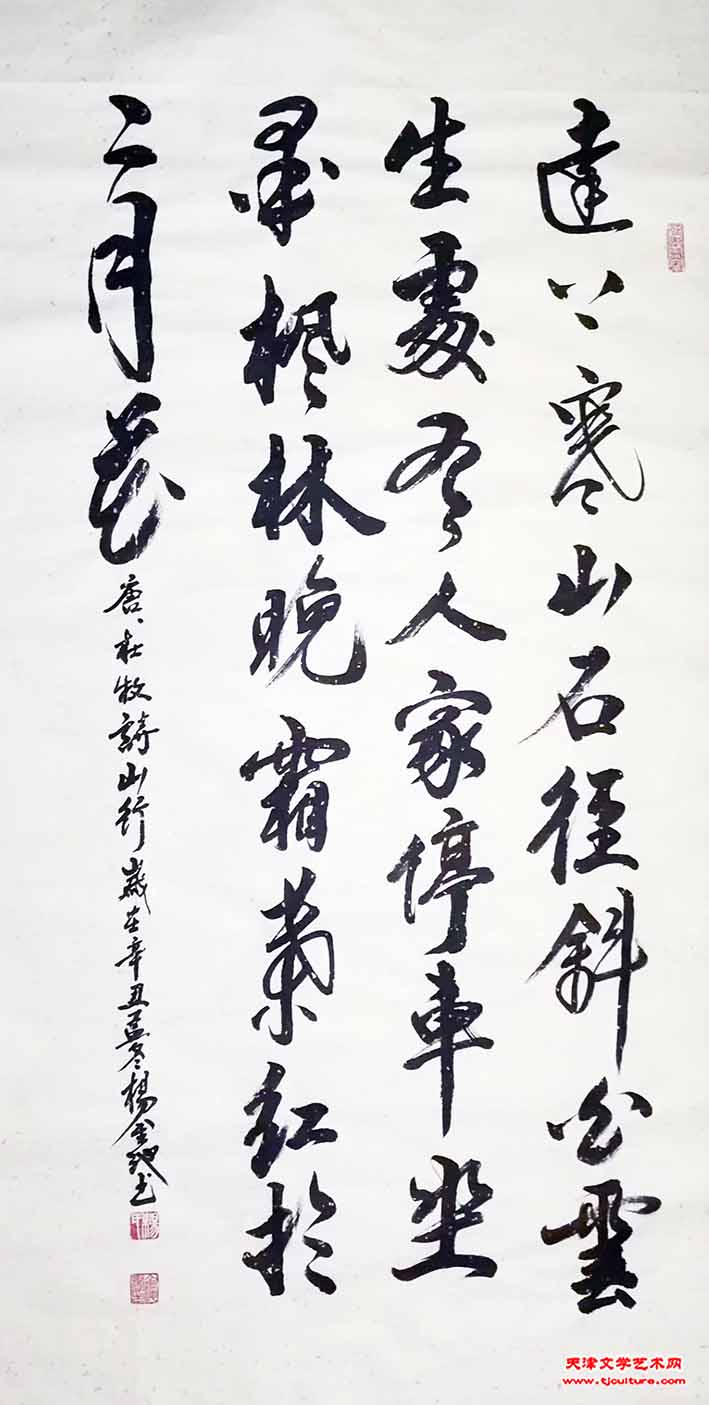 遠上寒山石徑斜白雲
生處有人家停車坐
愛楓林晚霜葉紅於
二月花
唐、杜牧詩山行歲在辛丑孟冬楊金书
天津文学艺术网
www.tjculture.com